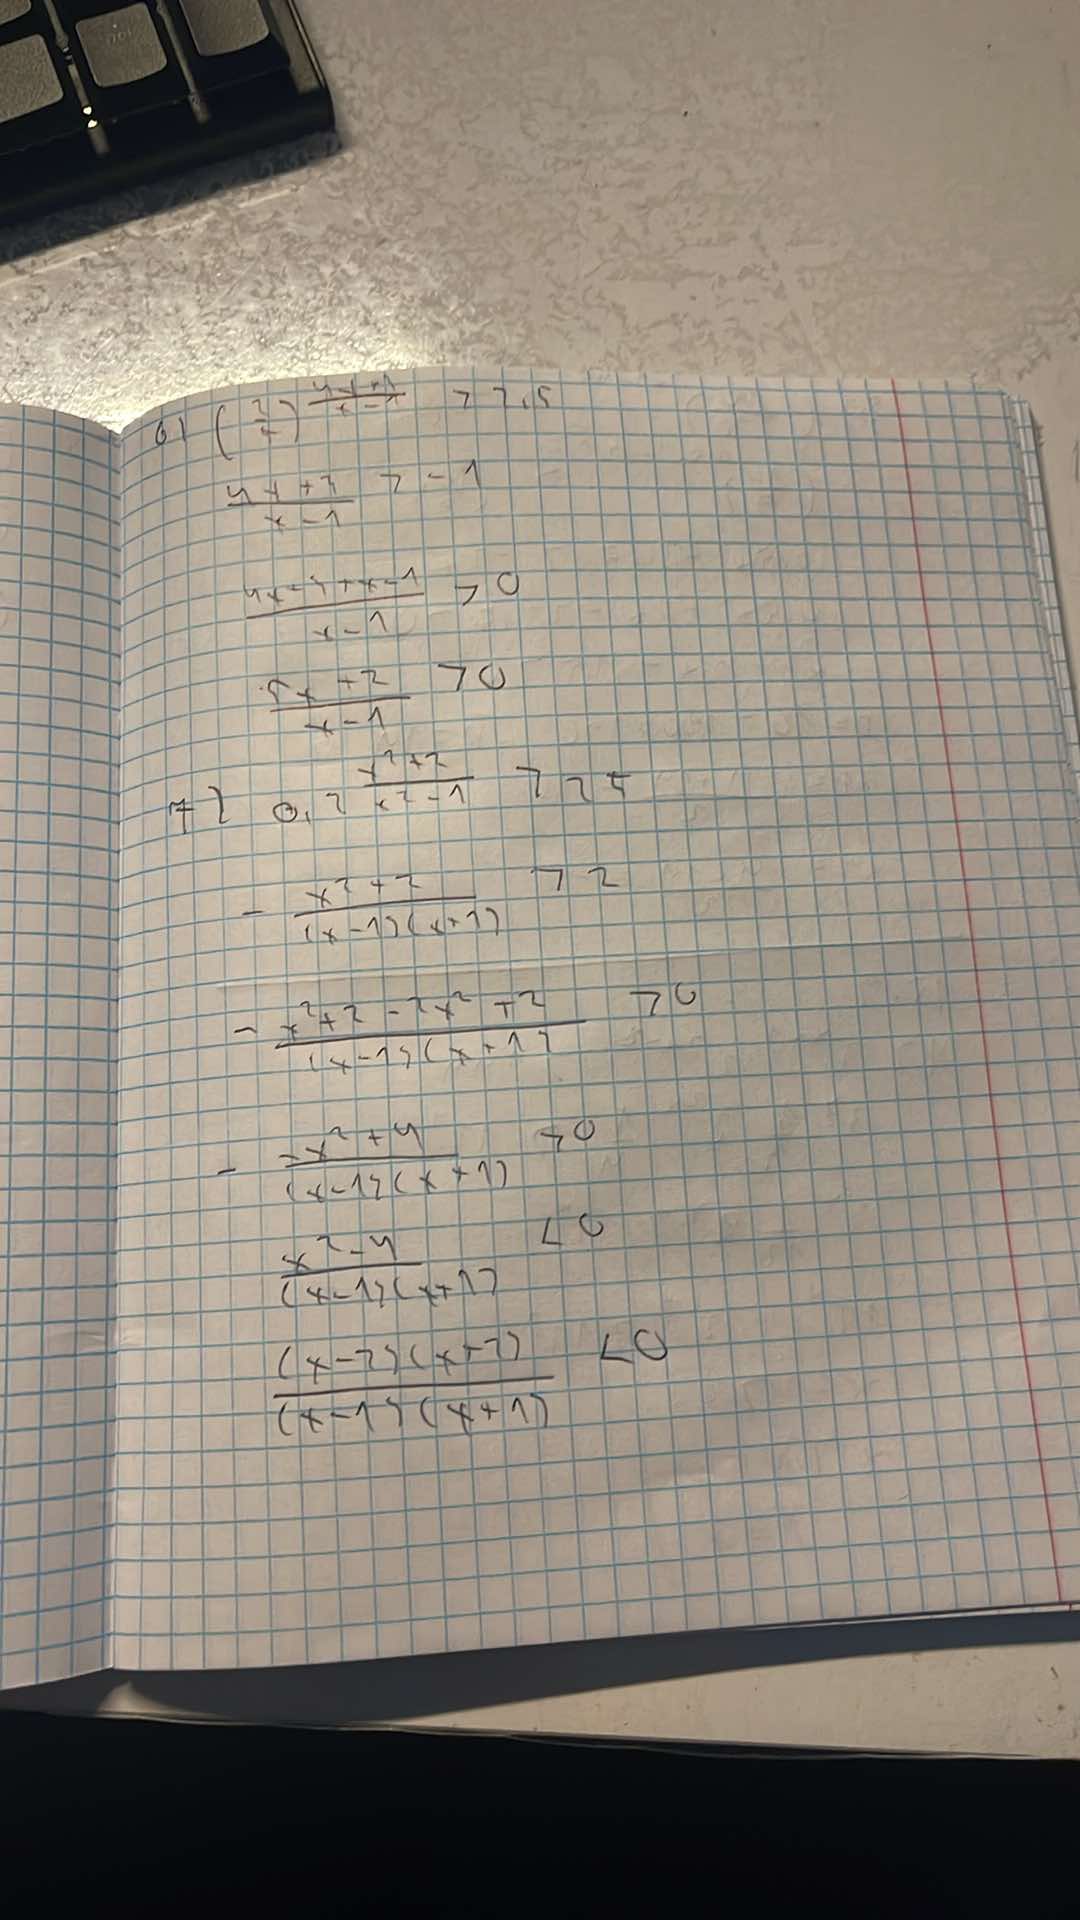 6) (2/5)^((4x+3)/(x-1)) > 2,5
(4x+3)/(x-1) > -1
(4x-3+x-1)/(x-1) > 0
(5x+2)/(x-1) > 0
7) 0,2^((x²+2)/(x²-1)) > 25
- (x²+2)/((x-1)(x+1)) > 2
- (x²+2-2x²+2)/((x-1)(x+1)) > 0
- (-x²+4)/((x-1)(x+1)) > 0
(x²-4)/((x-1)(x+1)) < 0
((x-2)(x+2))/((x-1)(x+1)) < 0